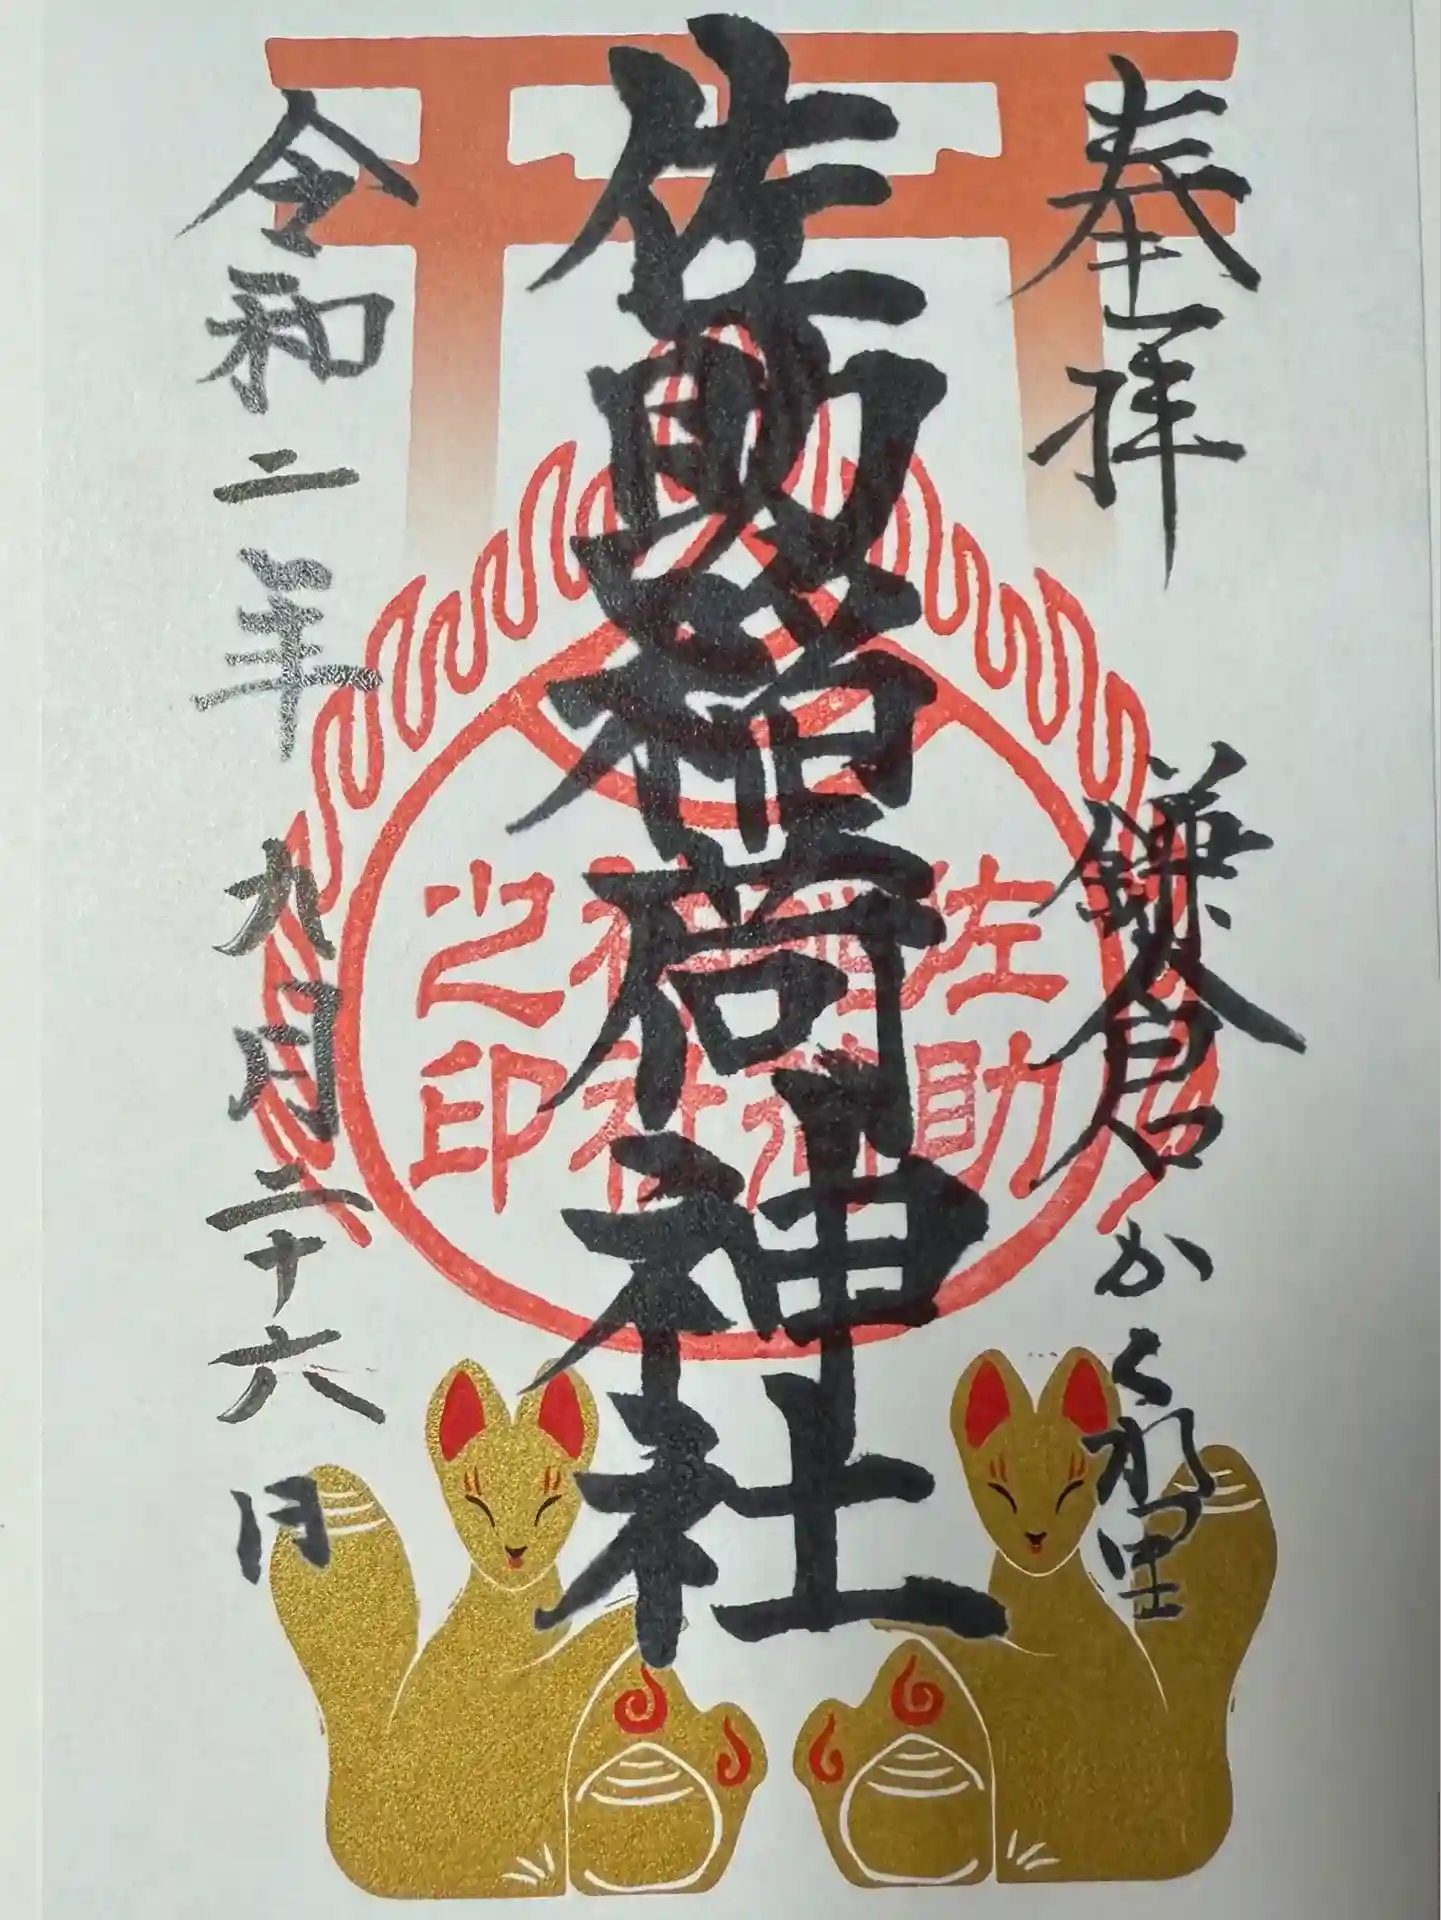 奉拝
鎌倉かくれ里
佐助稲荷神社
佐助
稲荷
神社
之印
令和二年九月二十六日